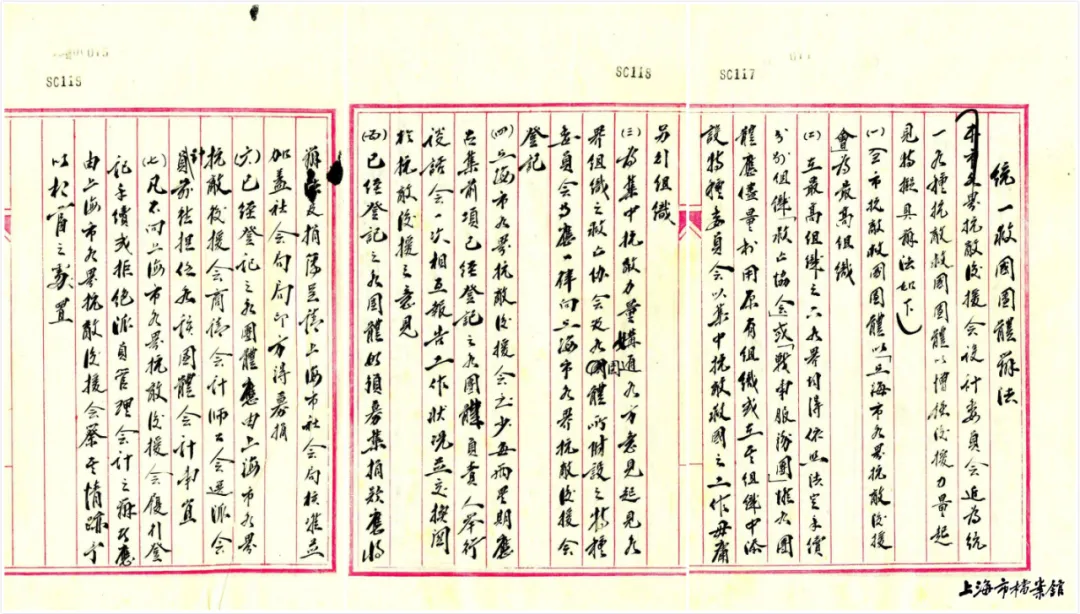 SC117
統一救國團體辦法
本市各界抗敵後援會設計委員會近為統
一各種抗敵救國團體以增強後援力量起
見特擬具辦法如下
(一)全市抗敵救國團體以「上海市各界抗敵後援
會」為最高組織
(二)在最高組織之下各界得依照法定手續
分別組織「救亡協會」或「戰爭服務團」惟各團
體應儘量利用原有組織或在其組織中添
設特種委員會以集中抗敵救國之工作毋庸
SC118
另行組織
(三)為集中抗敵力量媾通各方意見起見各
界組織之救亡協會及各團體所附設之特種
委員會等應一律向上海市各界抗敵後援會
登記
(四)上海市各界抗敵後援會至少每兩星期應
召集前項已經登記之各團體負責人舉行
談話會一次相互報告工作狀況並交換關
於抗敵後援之意見
(五)已經登記之各團體如須募集捐款應將
SC119
辦法及捐簿呈請上海市社會局核准並
加蓋社會局局印方得募捐
(六)已經登記之各團體應由上海市各界
抗敵後援會商請會計師公會選派會
計員前往担任各該團體會計事宜
(七)凡不向上海市各界抗敵後援會履行登
記手續或拒絕派員管理會計之
由上海市各界抗敵後援會察其情跡予
以相當之處置
上海市檔案館